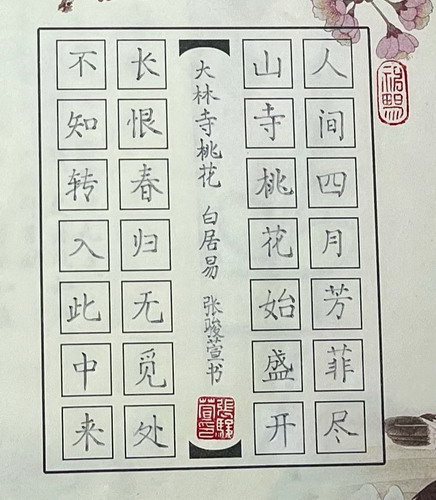 人间四月芳菲尽
山寺桃花始盛开
大林寺桃花 白居易 张骏萱书
长恨春归无觅处
不知转入此中来